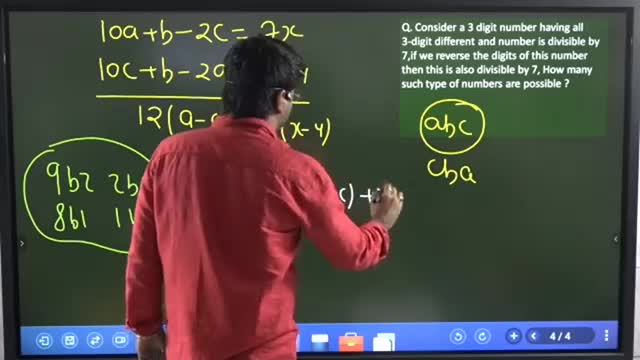 10a+b-2c = 7x
10c+b-2a
12(a-c (x-y)
9b2 2b
8b1 1b
c) +
Q. Consider a 3 digit number having all
3-digit different and number is divisible by
7,if we reverse the digits of this number
then this is also divisible by 7, How many
such type of numbers are possible ?
abc
cba
4/4